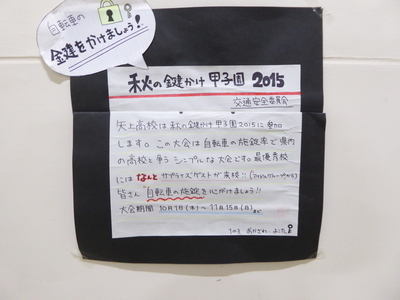 自転車の
鍵をかけましょう!
秋の鍵かけ 甲子園 2015
交通安全委員会
矢上高校は秋の鍵かけ甲子園2015に参加
します。この大会は自転車の施錠率で県内
の高校と争うシンプルな大会です。最優秀校
にはなんとサプライズゲストが来校!!
皆さん 自転車の施錠を心がけましょう!!
大会期間 10月1日(木)~11月15日(日)まで